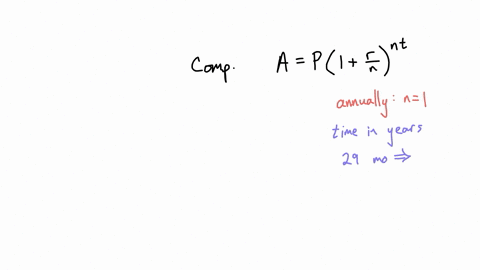 Comp. A = P(1 + r/n)^nt
annually: n=1
time in years
29 mo ⇒